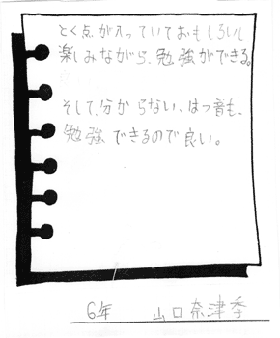 とく点が入っていておもしろいし
楽しみながら、勉強ができる。
そして、分からない、はつ音も、
勉強できるので良い。
6年 山口奈津季